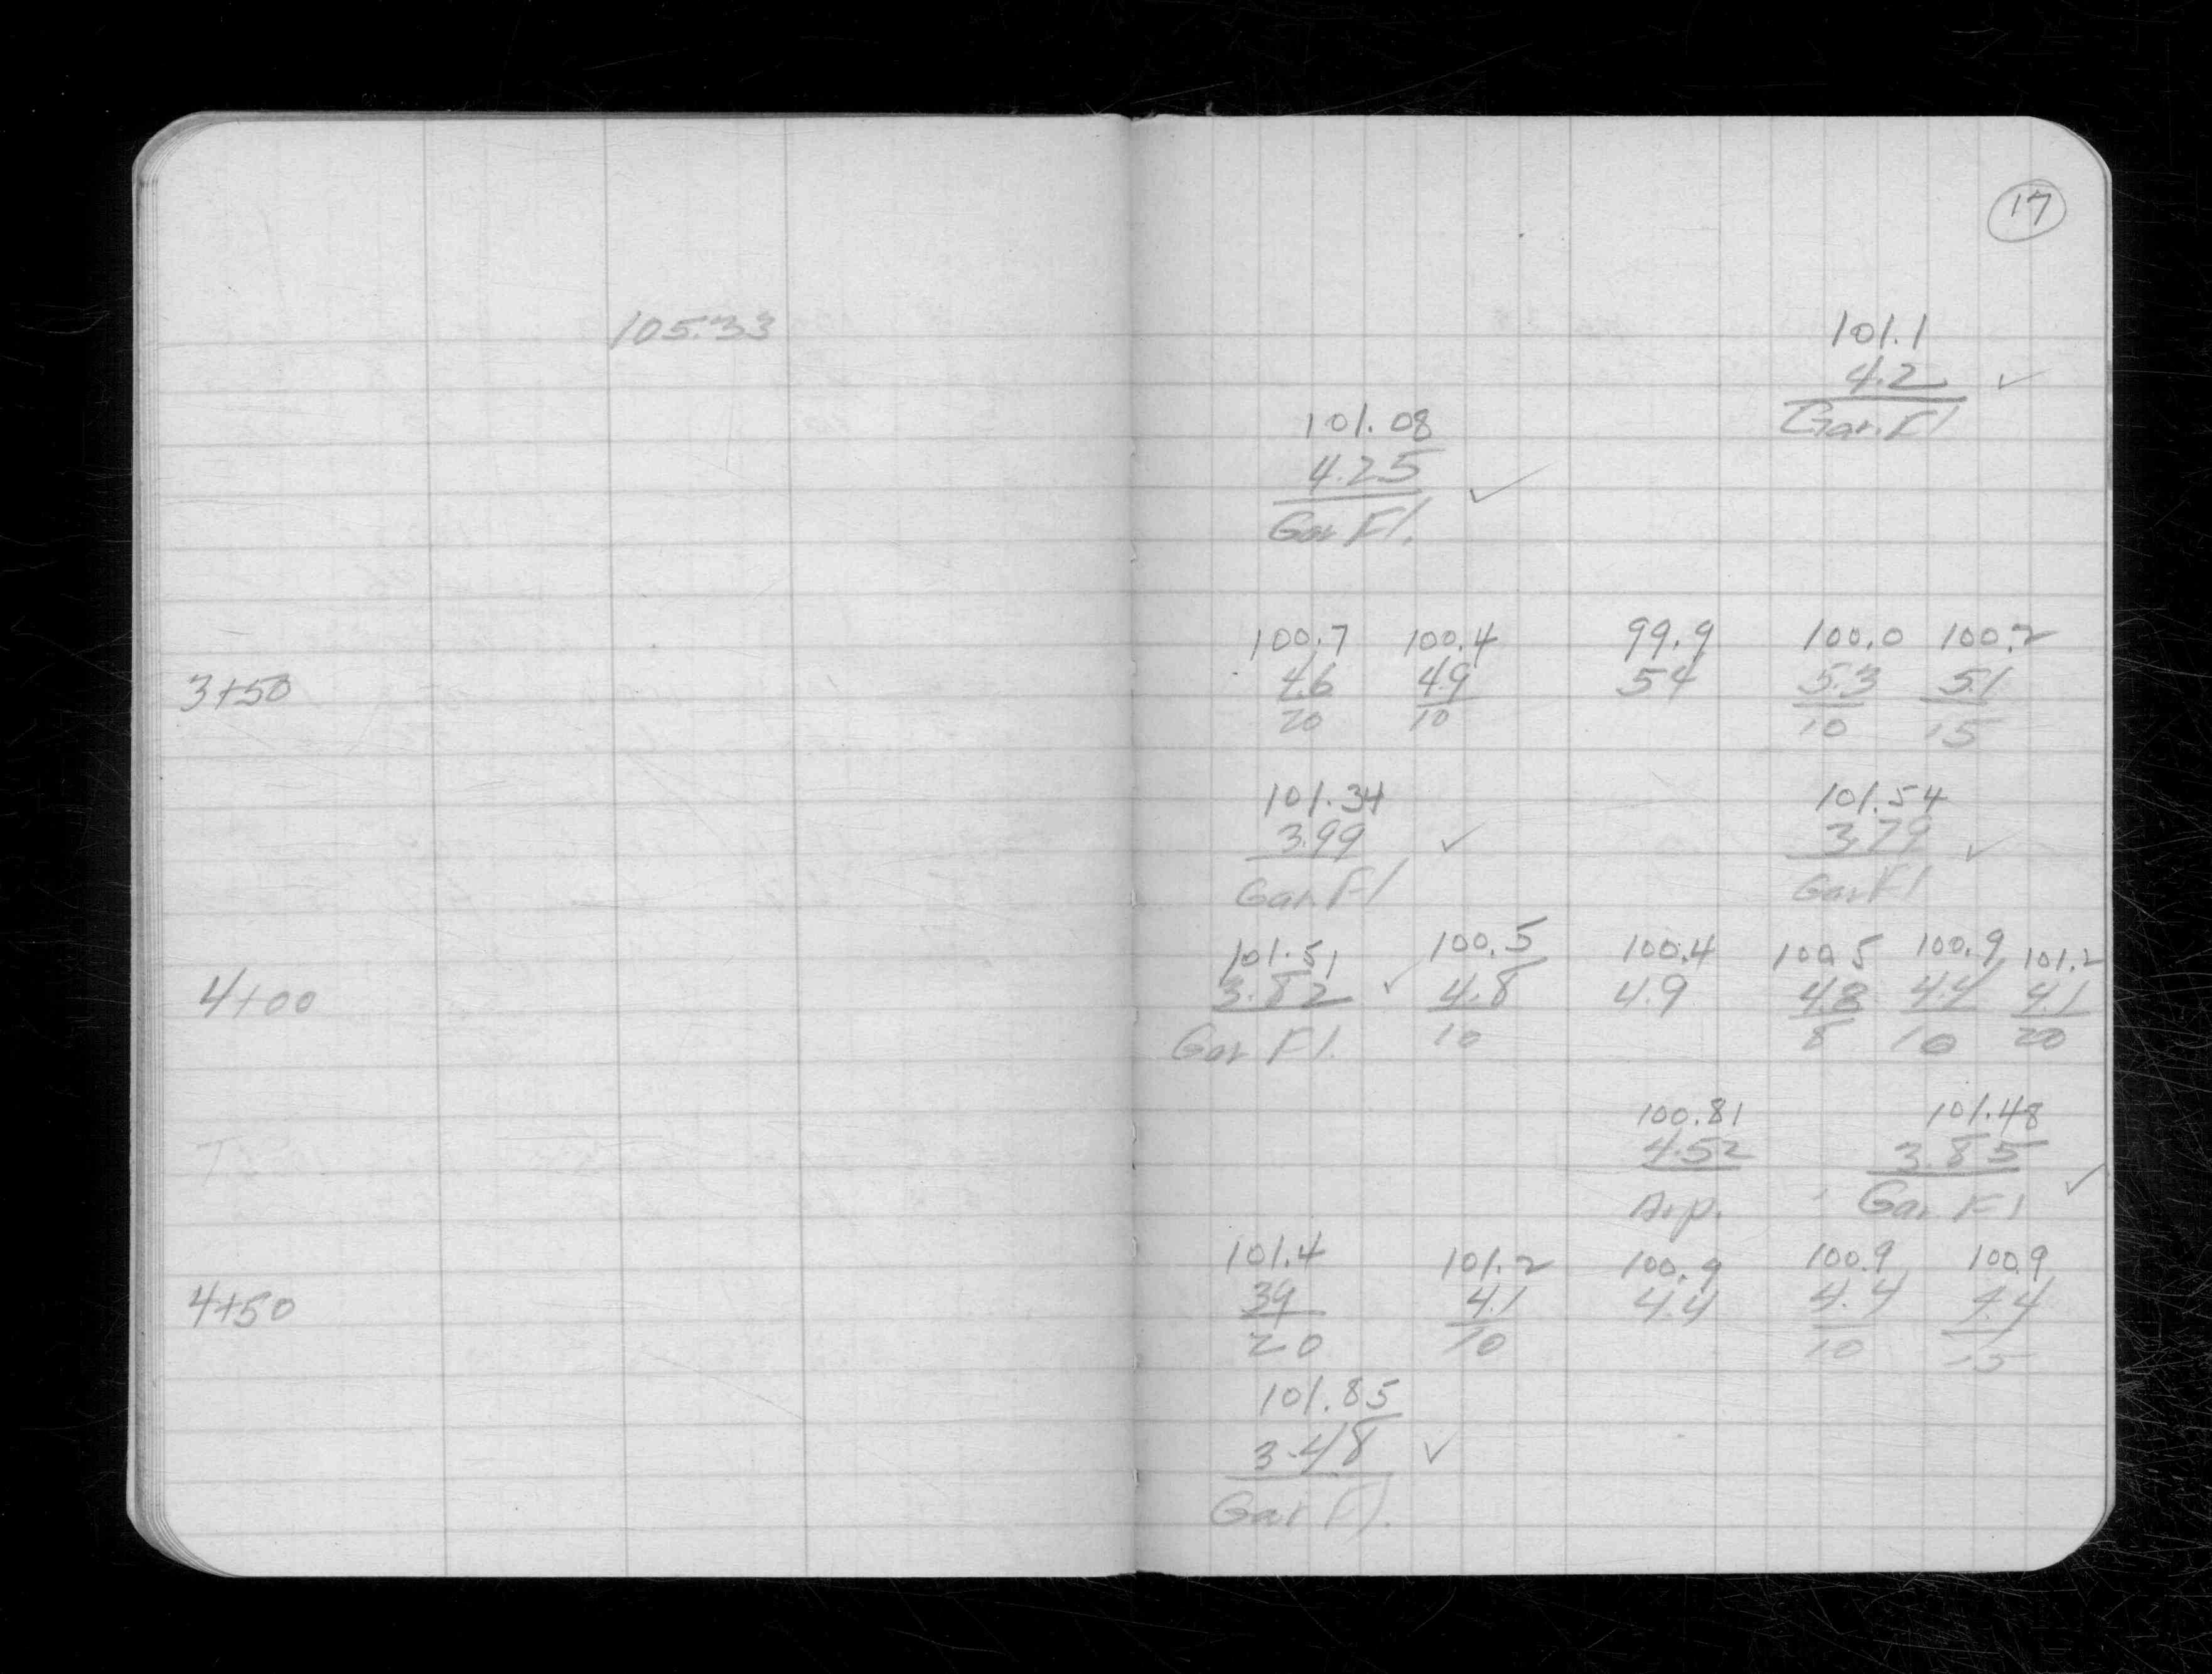 17
105.33
101.1
4.2 ✓
Gar. Fl
101.08
4.25 ✓
Gar Fl.
100.7 100.4 99.9 100.0 100.2
3+50 4.6 4.9 54 5.3 5.1
20 10 10 15
101.34 101.54
3.99 ✓ 3.79 ✓
Gar. Fl Gar Fl
101.51 100.5 100.4 100.5 100.9 101.2
4+00 3.82 ✓ 4.8 4.9 4.8 4.4 4.1
Gar Fl. 10 8 10 20
100.81 101.48
4.52 3.85 ✓
Gar Fl
101.4 101.2 100.9 100.9 100.9
4+50 39 4.1 4.4 4.4 4.4
20 10 10 15
101.85
3.48 ✓
Gar Fl.